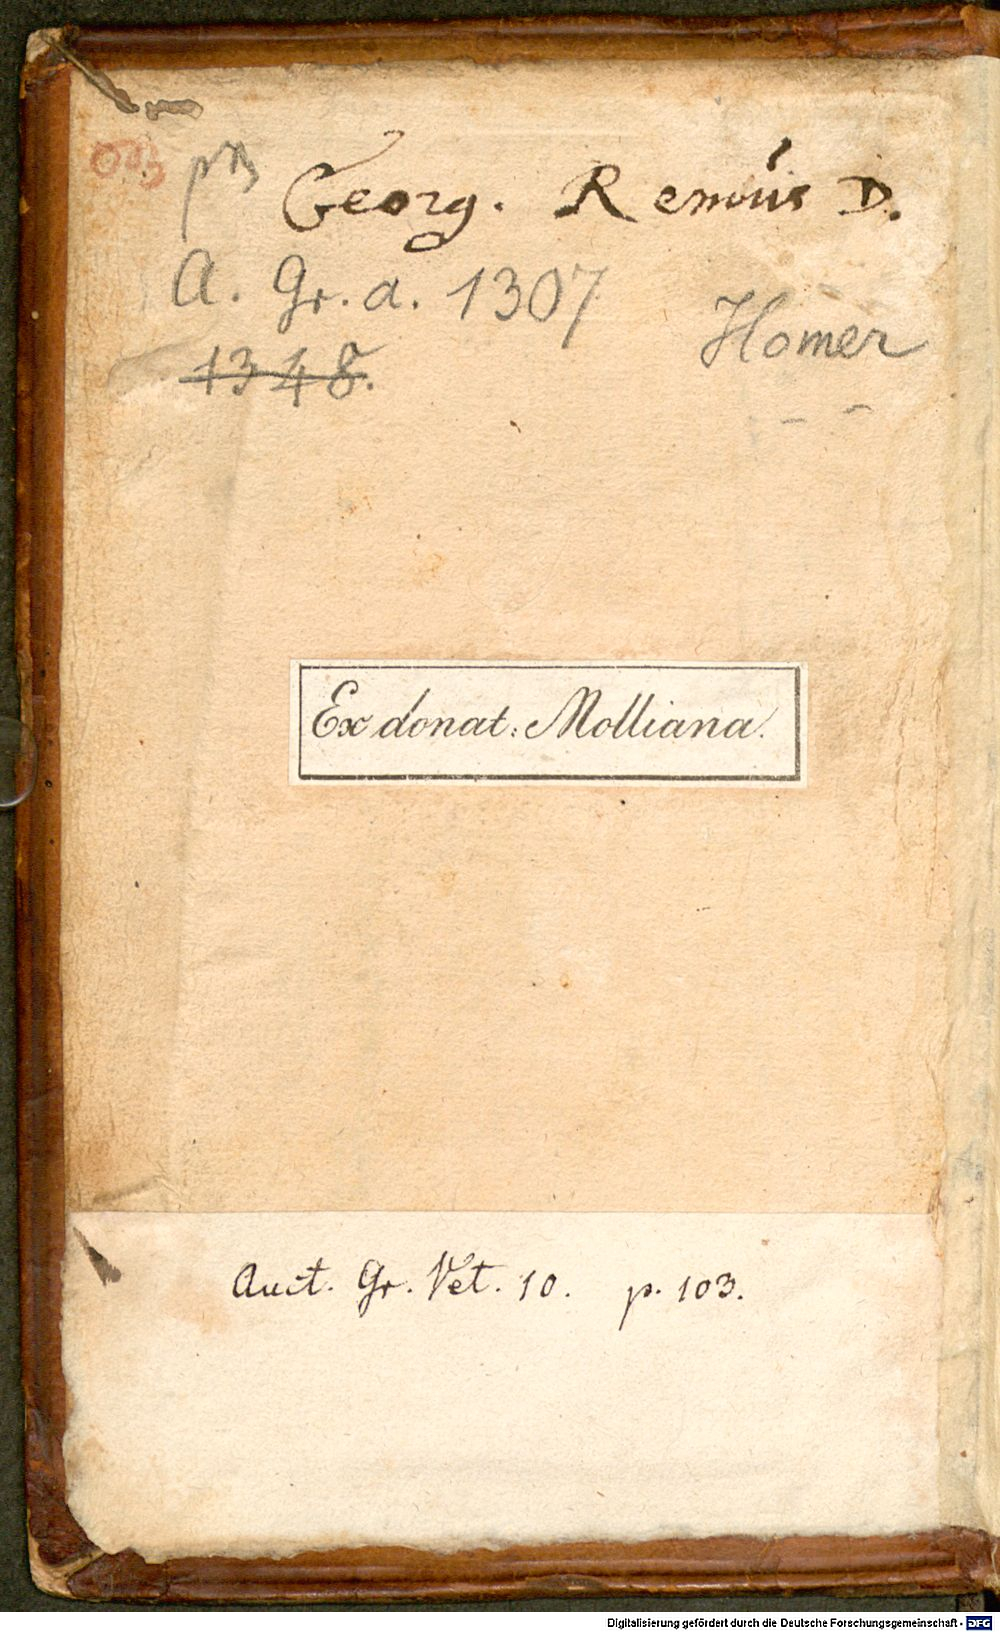 Georg. Remus D.
A. Gr. a. 1307
Homer
1348.
Ex donat: Molliana.
Auct. Gr. Vet. 10. p. 103.
Digitalisierung gefördert durch die Deutsche Forschungsgemeinschaft - DFG